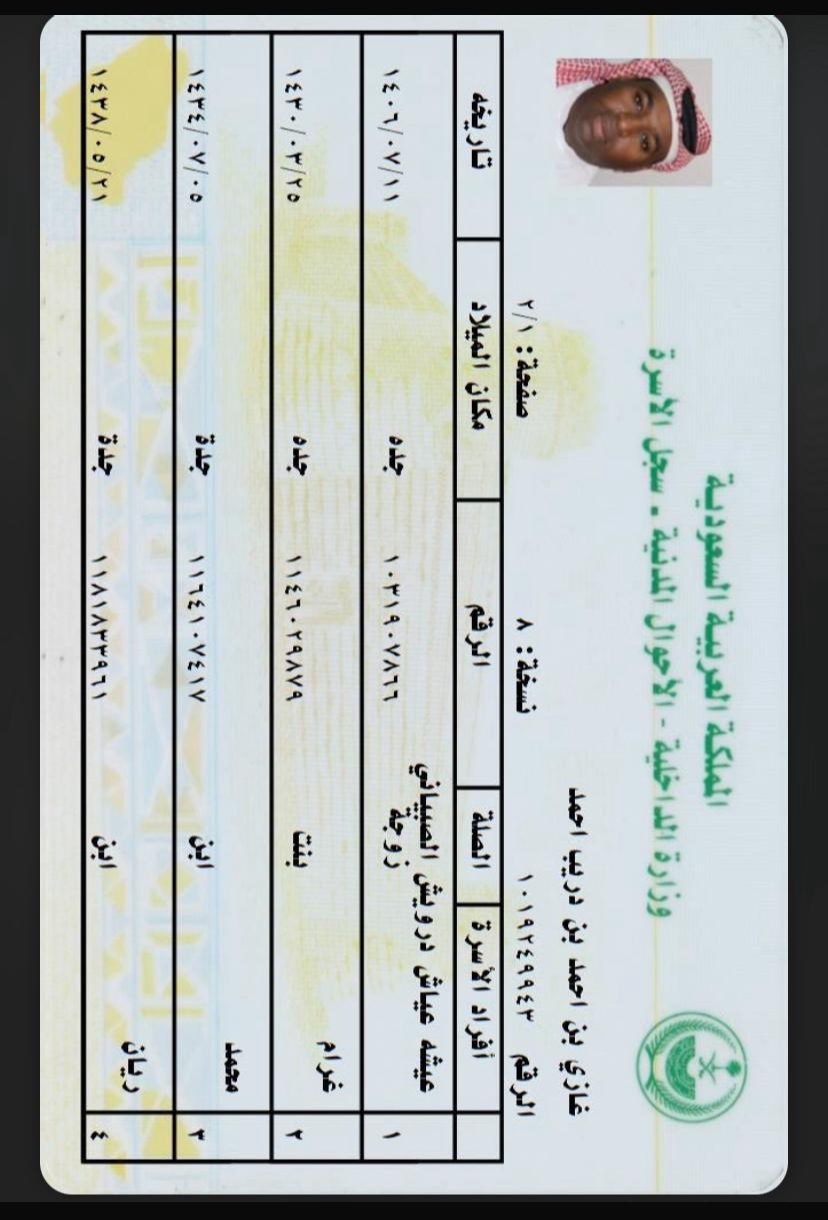 المملكة العربية السعودية
وزارة الداخلية - الأحوال المدنية - سجل الأسرة
غازي بن احمد بن دريب احمد
الرقم ١٠١٩٢٤٩٩٤٣ نسخة: ٨ صفحة: ٢/١
أفراد الأسرة الصلة الرقم مكان الميلاد تاريخه
١ عيشه عياش درويش الصبياني زوجة ١٠٣١٩٠٧٨٦٦ جده ١٤٠٦/٠٧/١١
٢ غرام بنت ١١٤٦٠٢٩٨٧٩ جده ١٤٣٠/٠٣/٢٥
٣ محمد ابن ١١٦٤١٠٧٤١٧ جدة ١٤٣٤/٠٧/٠٥
٤ ريان ابن ١١٨١٨٣٣٩٦١ جدة ١٤٣٨/٠٥/٢١